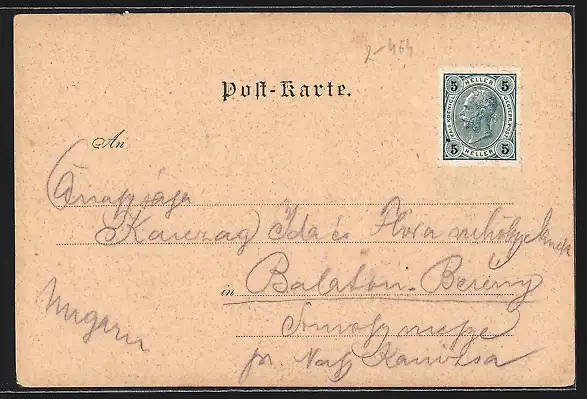 2-464
Post-Karte.
5 HELLER 5
5 HELLER 5
An
Őnagysága
Karczag Ida és Flora urhölgyeknek
in Balaton-Berény
Somogy megye
Ungarn
pr. Nagy Kanizsa